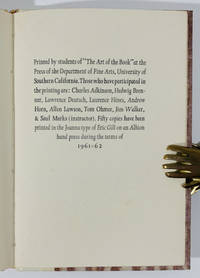 Printed by students of "The Art of the Book" at the
Press of the Department of Fine Arts, University of
Southern California. Those who have participated in
the printing are: Charles Adkinson, Hedwig Bren-
ner, Lawrence Deutsch, Laurence Hines, Andrew
Horn, Allen Lawson, Tom Ohmer, Jim Walker,
& Saul Marks (instructor). Fifty copies have been
printed in the Joanna type of Eric Gill on an Albion
hand press during the terms of
1961-62